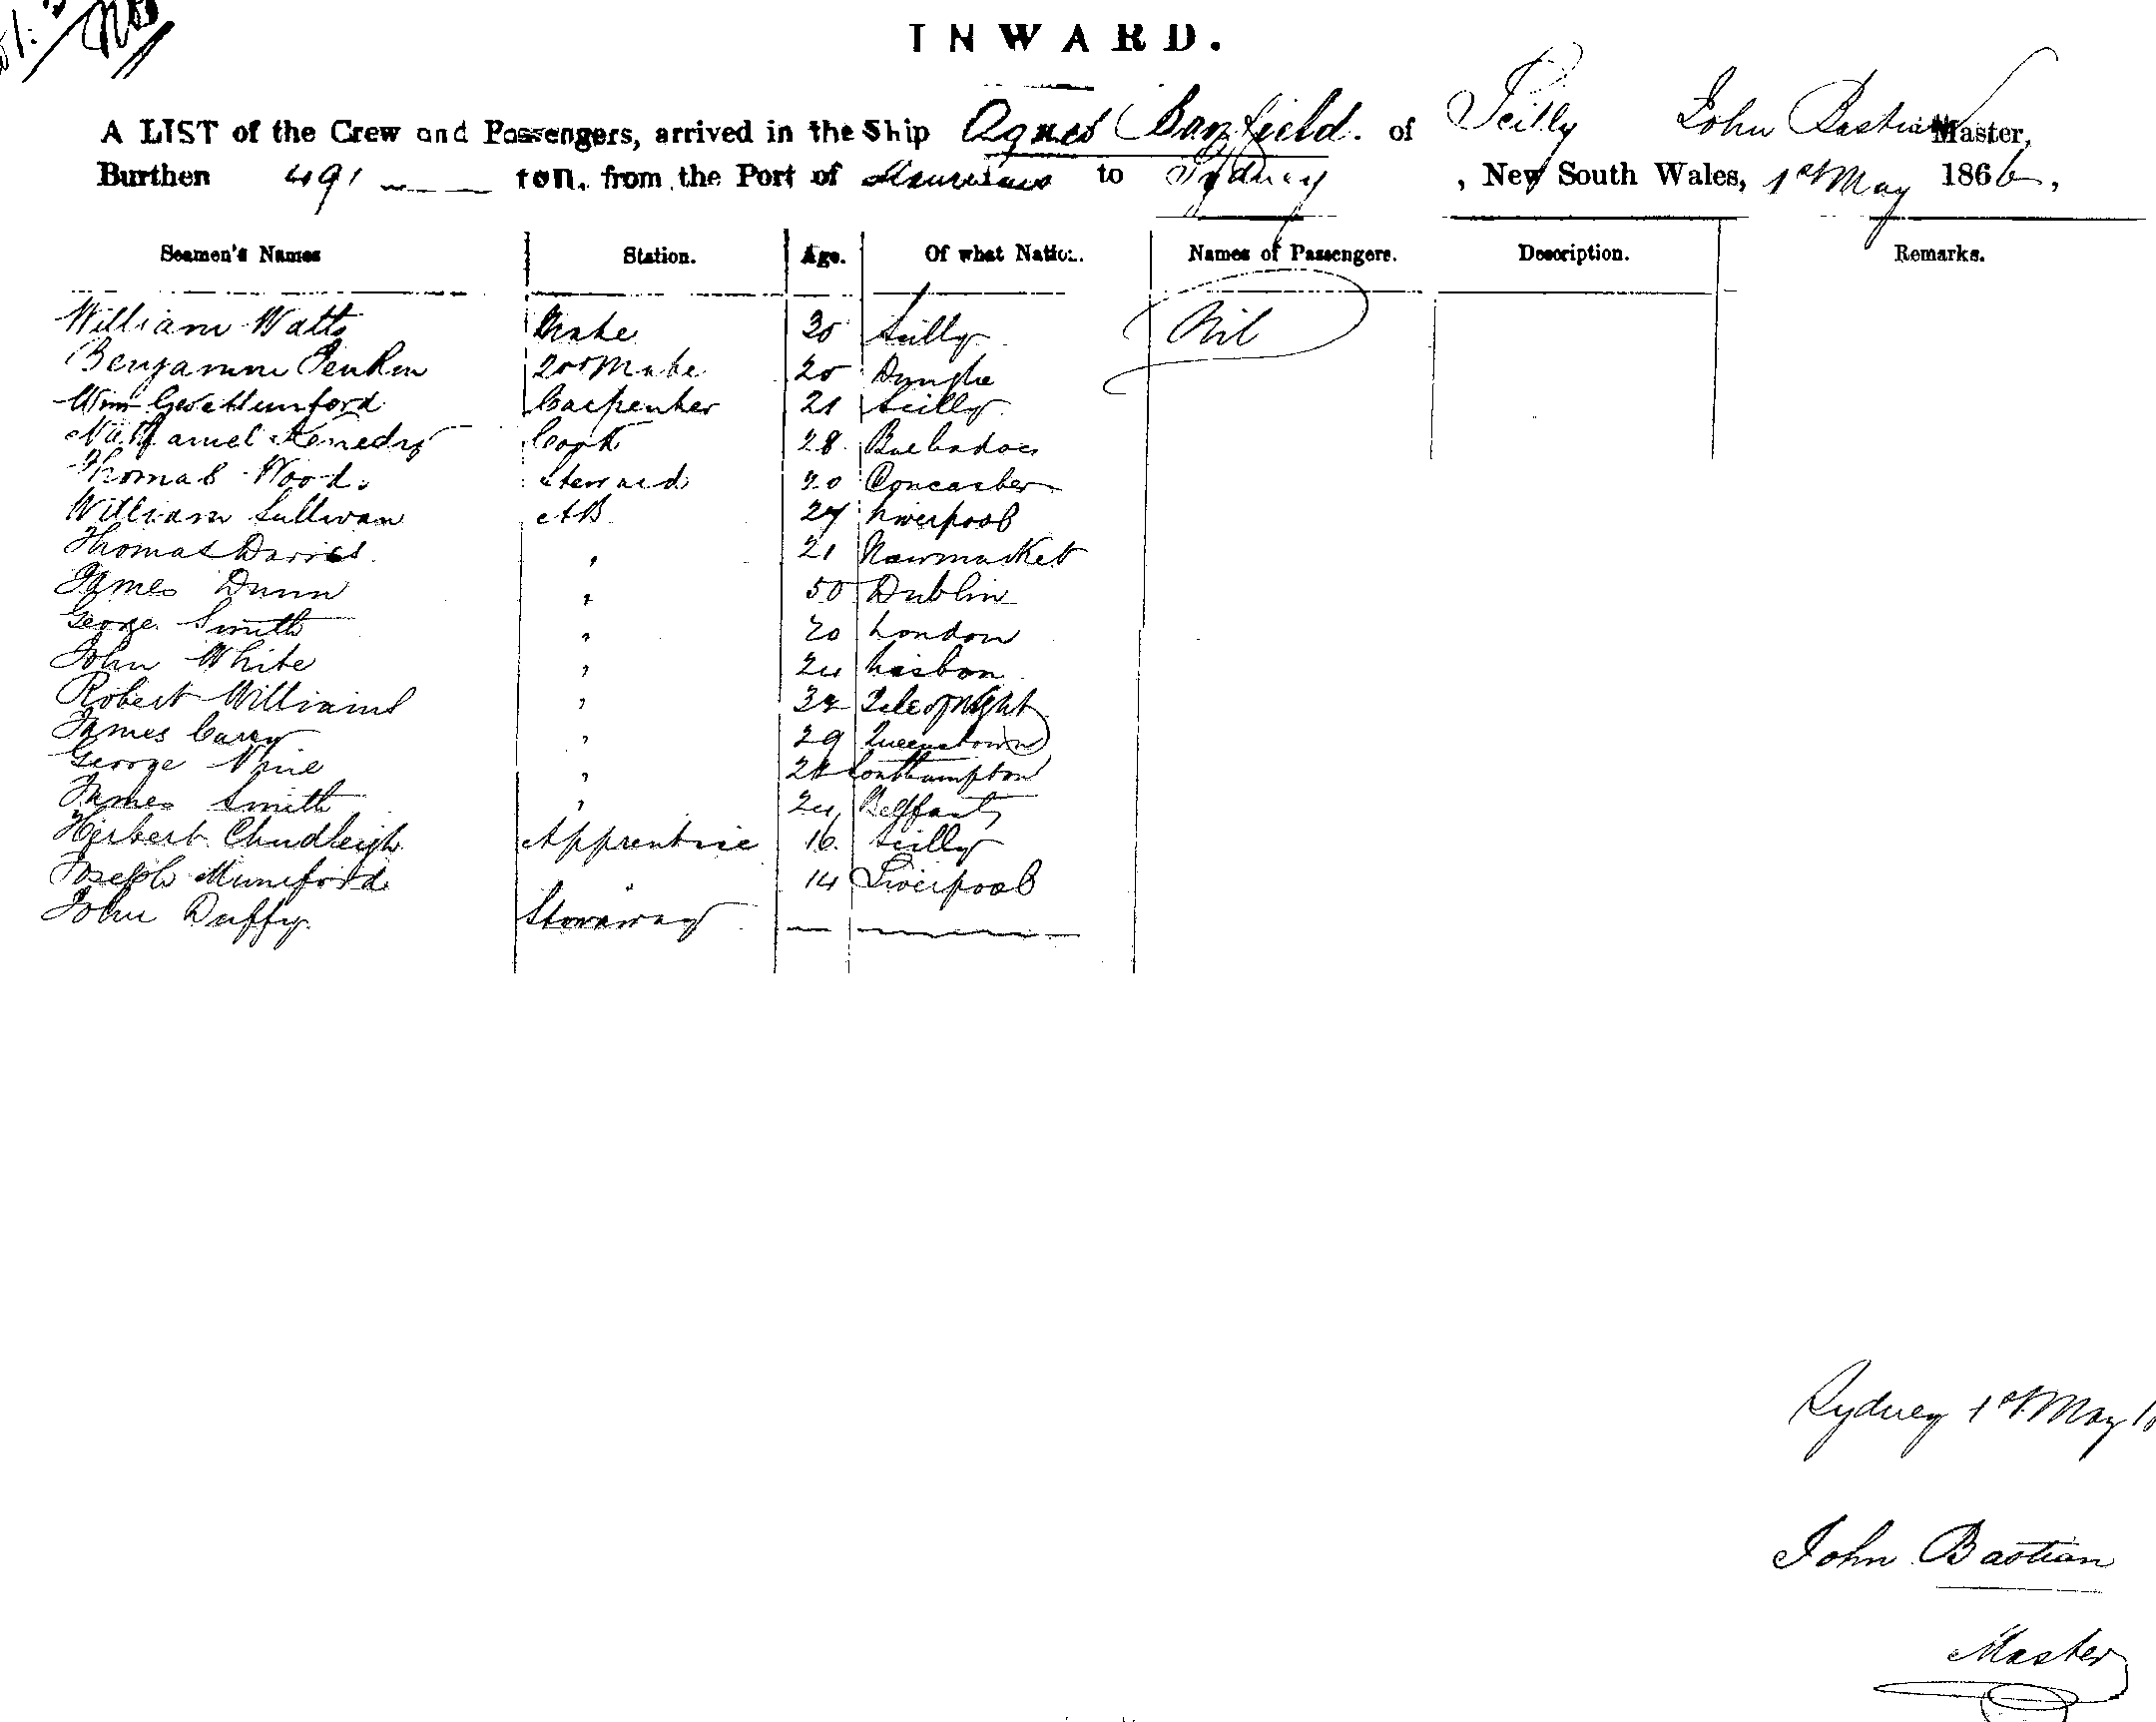 INWARD.
A LIST of the Crew and Passengers, arrived in the Ship Agnes Banfield. of Scilly John Bastian Master,
Burthen 491 ton, from the Port of Mauritius to Sydney, New South Wales, 1st May 1866,
Seamen's Names Station. Age. Of what Nation. Names of Passengers. Description. Remarks.
William Watts Mate 30 Scilly Nil
Benjamin Jenkin 2nd Mate 20
Wm Geo Mumford Carpenter 21 Scilly
Nathaniel Kenedy Cook 28 Barbadoes
Thomas Wood Steward 20
William Sullivan AB 27 Liverpool
Thomas Davies " 21 Newmarket
James Dunn " 50 Dublin
George Smith " 20 London
John White " 24 Lisbon
Robert Williams " 32 Isle of Wight
James Carey " 29 Queenstown
George " Southampton
James Smith " 24 Belfast
Herbert Chudleigh Apprentice 16 Scilly
Joseph Mumford " 14 Liverpool
John Duffy Stowaway
Sydney 1st May
John Bastian
Master